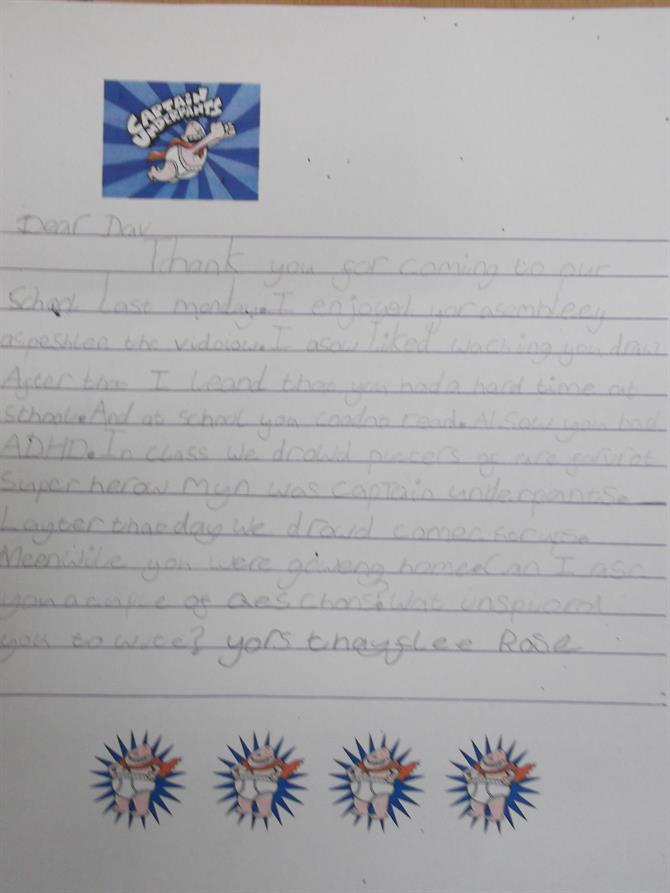 CAPTAIN
UNDERPANTS
Dear Dav
Thank you for coming to our
School Last monday. I enjoyd yor asembleey
aspeshlee the vidoiow. I asow liked waching you draw
After that I Leand that you had a hard time at
school. And at school you coodno read. Alsow you had
ADHD. In class we drowd picters of are
Super herow myn was captain underpants.
Layter that day we drowd comec
Meenwile you were goweng home. Can I asc
you a cuple of qeschons? Wat inspuord
you to write? yors thaygflee Rose